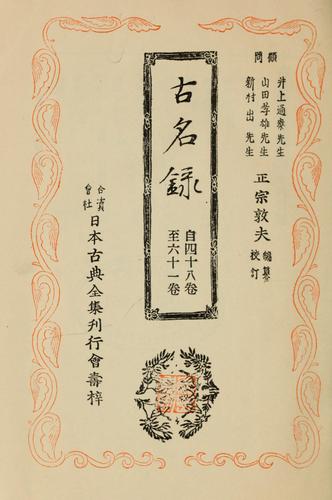 顧問
井上通泰先生
山田孝雄先生
新村出先生
正宗敦夫 編纂校訂
古名録
自四十八卷
至六十一卷
合資會社 日本古典全集刊行會壽梓